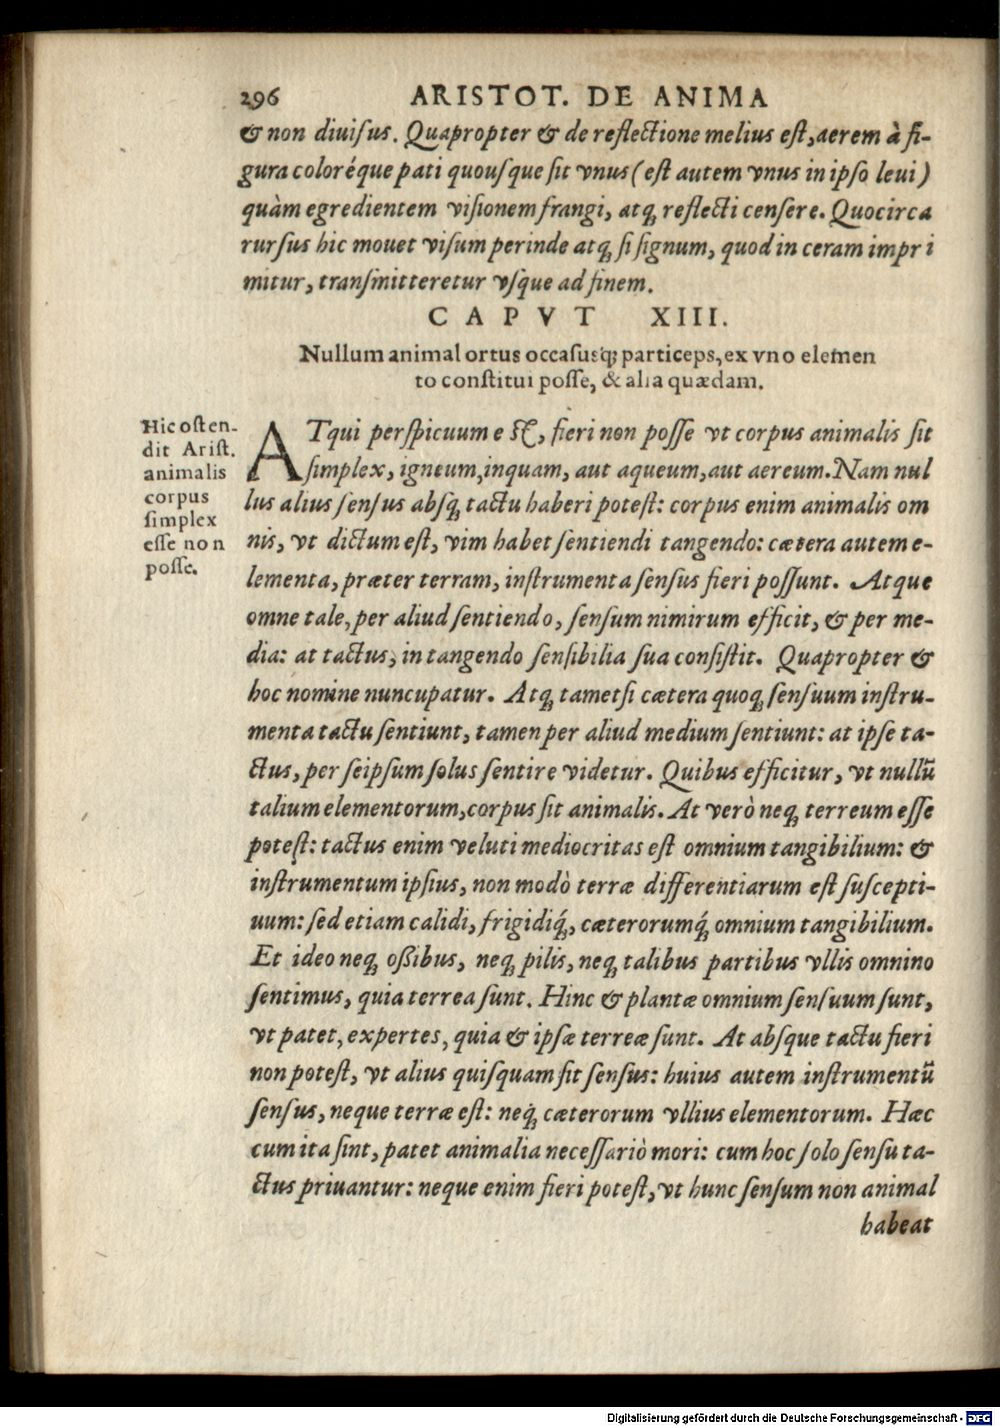 296 ARISTOT. DE ANIMA
& non diuiſus. Quapropter & de reflectione melius eſt, aerem à fi-
gura coloréque pati quouſque ſit vnus (eſt autem vnus in ipſo leui)
quàm egredientem viſionem frangi, atq; reflecti cenſere. Quocirca
rurſus hic mouet viſum perinde atq; ſi ſignum, quod in ceram impri
mitur, tranſmitteretur vſque ad finem.
CAPVT XIII.
Nullum animal ortus occaſusq́; particeps, ex vno elemen
to conſtitui poſſe, & alia quædam.
Hic oſten-
dit Ariſt.
animalis
corpus
ſimplex
eſſe non
poſſe.
ATqui perſpicuum eſt, fieri non poſſe vt corpus animalis ſit
ſimplex, igneum, inquam, aut aqueum, aut aereum. Nam nul
lus alius ſenſus abſq; tactu haberi poteſt: corpus enim animalis om
nis, vt dictum eſt, vim habet ſentiendi tangendo: cætera autem e-
lementa, præter terram, inſtrumenta ſenſus fieri poſſunt. Atque
omne tale, per aliud ſentiendo, ſenſum nimirum efficit, & per me-
dia: at tactus, in tangendo ſenſibilia ſua conſiſtit. Quapropter &
hoc nomine nuncupatur. Atq; tametſi cætera quoq; ſenſuum inſtru-
menta tactu ſentiunt, tamen per aliud medium ſentiunt: at ipſe ta-
ctus, per ſeipſum ſolus ſentire videtur. Quibus efficitur, vt nullũ
talium elementorum, corpus ſit animalis. At verò neq; terreum eſſe
poteſt: tactus enim veluti mediocritas eſt omnium tangibilium: &
inſtrumentum ipſius, non modò terræ differentiarum eſt ſuſcepti-
uum: ſed etiam calidi, frigidiq́;, cæterorumq́; omnium tangibilium.
Et ideo neq; oſſibus, neq; pilis, neq; talibus partibus vllis omnino
ſentimus, quia terrea ſunt. Hinc & plantæ omnium ſenſuum ſunt,
vt patet, expertes, quia & ipſæ terreæ ſunt. At abſque tactu fieri
non poteſt, vt alius quiſquam ſit ſenſus: huius autem inſtrumentũ
ſenſus, neque terræ eſt: neq́; cæterorum vllius elementorum. Hæc
cum ita ſint, patet animalia neceſſariò mori: cum hoc ſolo ſenſu ta-
ctus priuantur: neque enim fieri poteſt, vt hunc ſenſum non animal
habeat
Digitalisierung gefördert durch die Deutsche Forschungsgemeinschaft - DFG